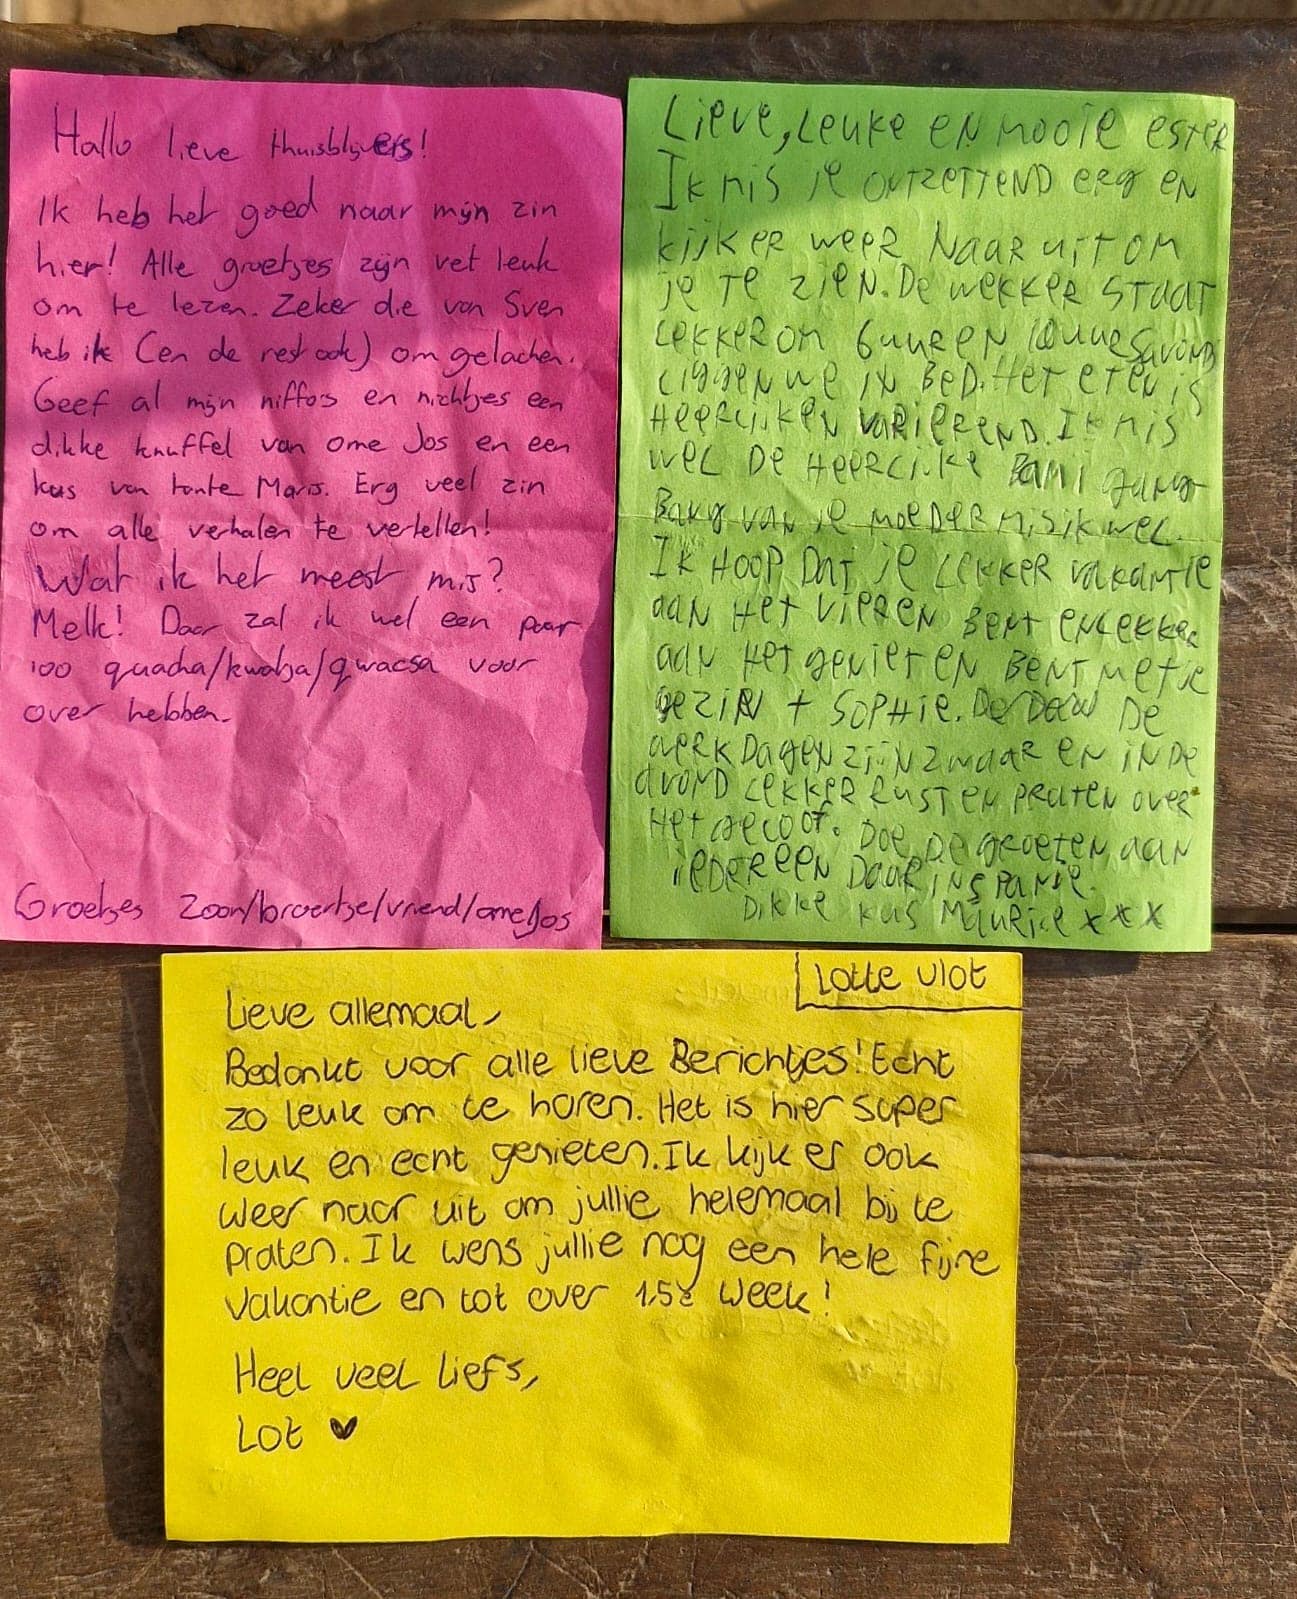 Hallo lieve thuisblijvers!
Ik heb het goed naar mijn zin
hier! Alle groetjes zijn vet leuk
om te lezen. Zeker die van Sven
heb ik (en de rest ook) om gelachen.
Geef al mijn niffo's en nichtjes een
dikke knuffel van ome Jos en een
kus van tante Maris. Erg veel zin
om alle verhalen te vertellen!
Wat ik het meest mis?
Melk! Daar zal ik wel een paar
100 quacha/kwatja/qwacsa voor
over hebben.
Groetjes zoon/broertje/vriend/ome Jos
Lieve, Leuke en mooie ester
Ik mis je ontzettend erg en
kijk er weer naar uit om
je te zien. De wekker staat
lekker om 6 uur en 10 uur savonds
liggen we in bed. Het eten is
heerlijk en variërend. Ik mis
wel de heerlijke Bami gang
Bang van je moeder mis ik wel.
Ik hoop dat je lekker vakantie
aan het vieren bent en lekker
aan het genieten bent met je
gezin + Sophie. De De
werkdagen zijn zwaar en in de
avond lekker rusten praten over
het geloof. Doe de groeten aan
iedereen daar in Spanje.
Dikke kus Maurice x x x
Lotte Vlot
Lieve allemaal,
Bedankt voor alle lieve Berichtjes! Echt
zo leuk om te horen. Het is hier super
leuk en echt genieten. Ik kijk er ook
weer naar uit om jullie helemaal bij te
praten. Ik wens jullie nog een hele fijne
vakantie en tot over 1,5 week!
Heel veel liefs,
Lot ♥